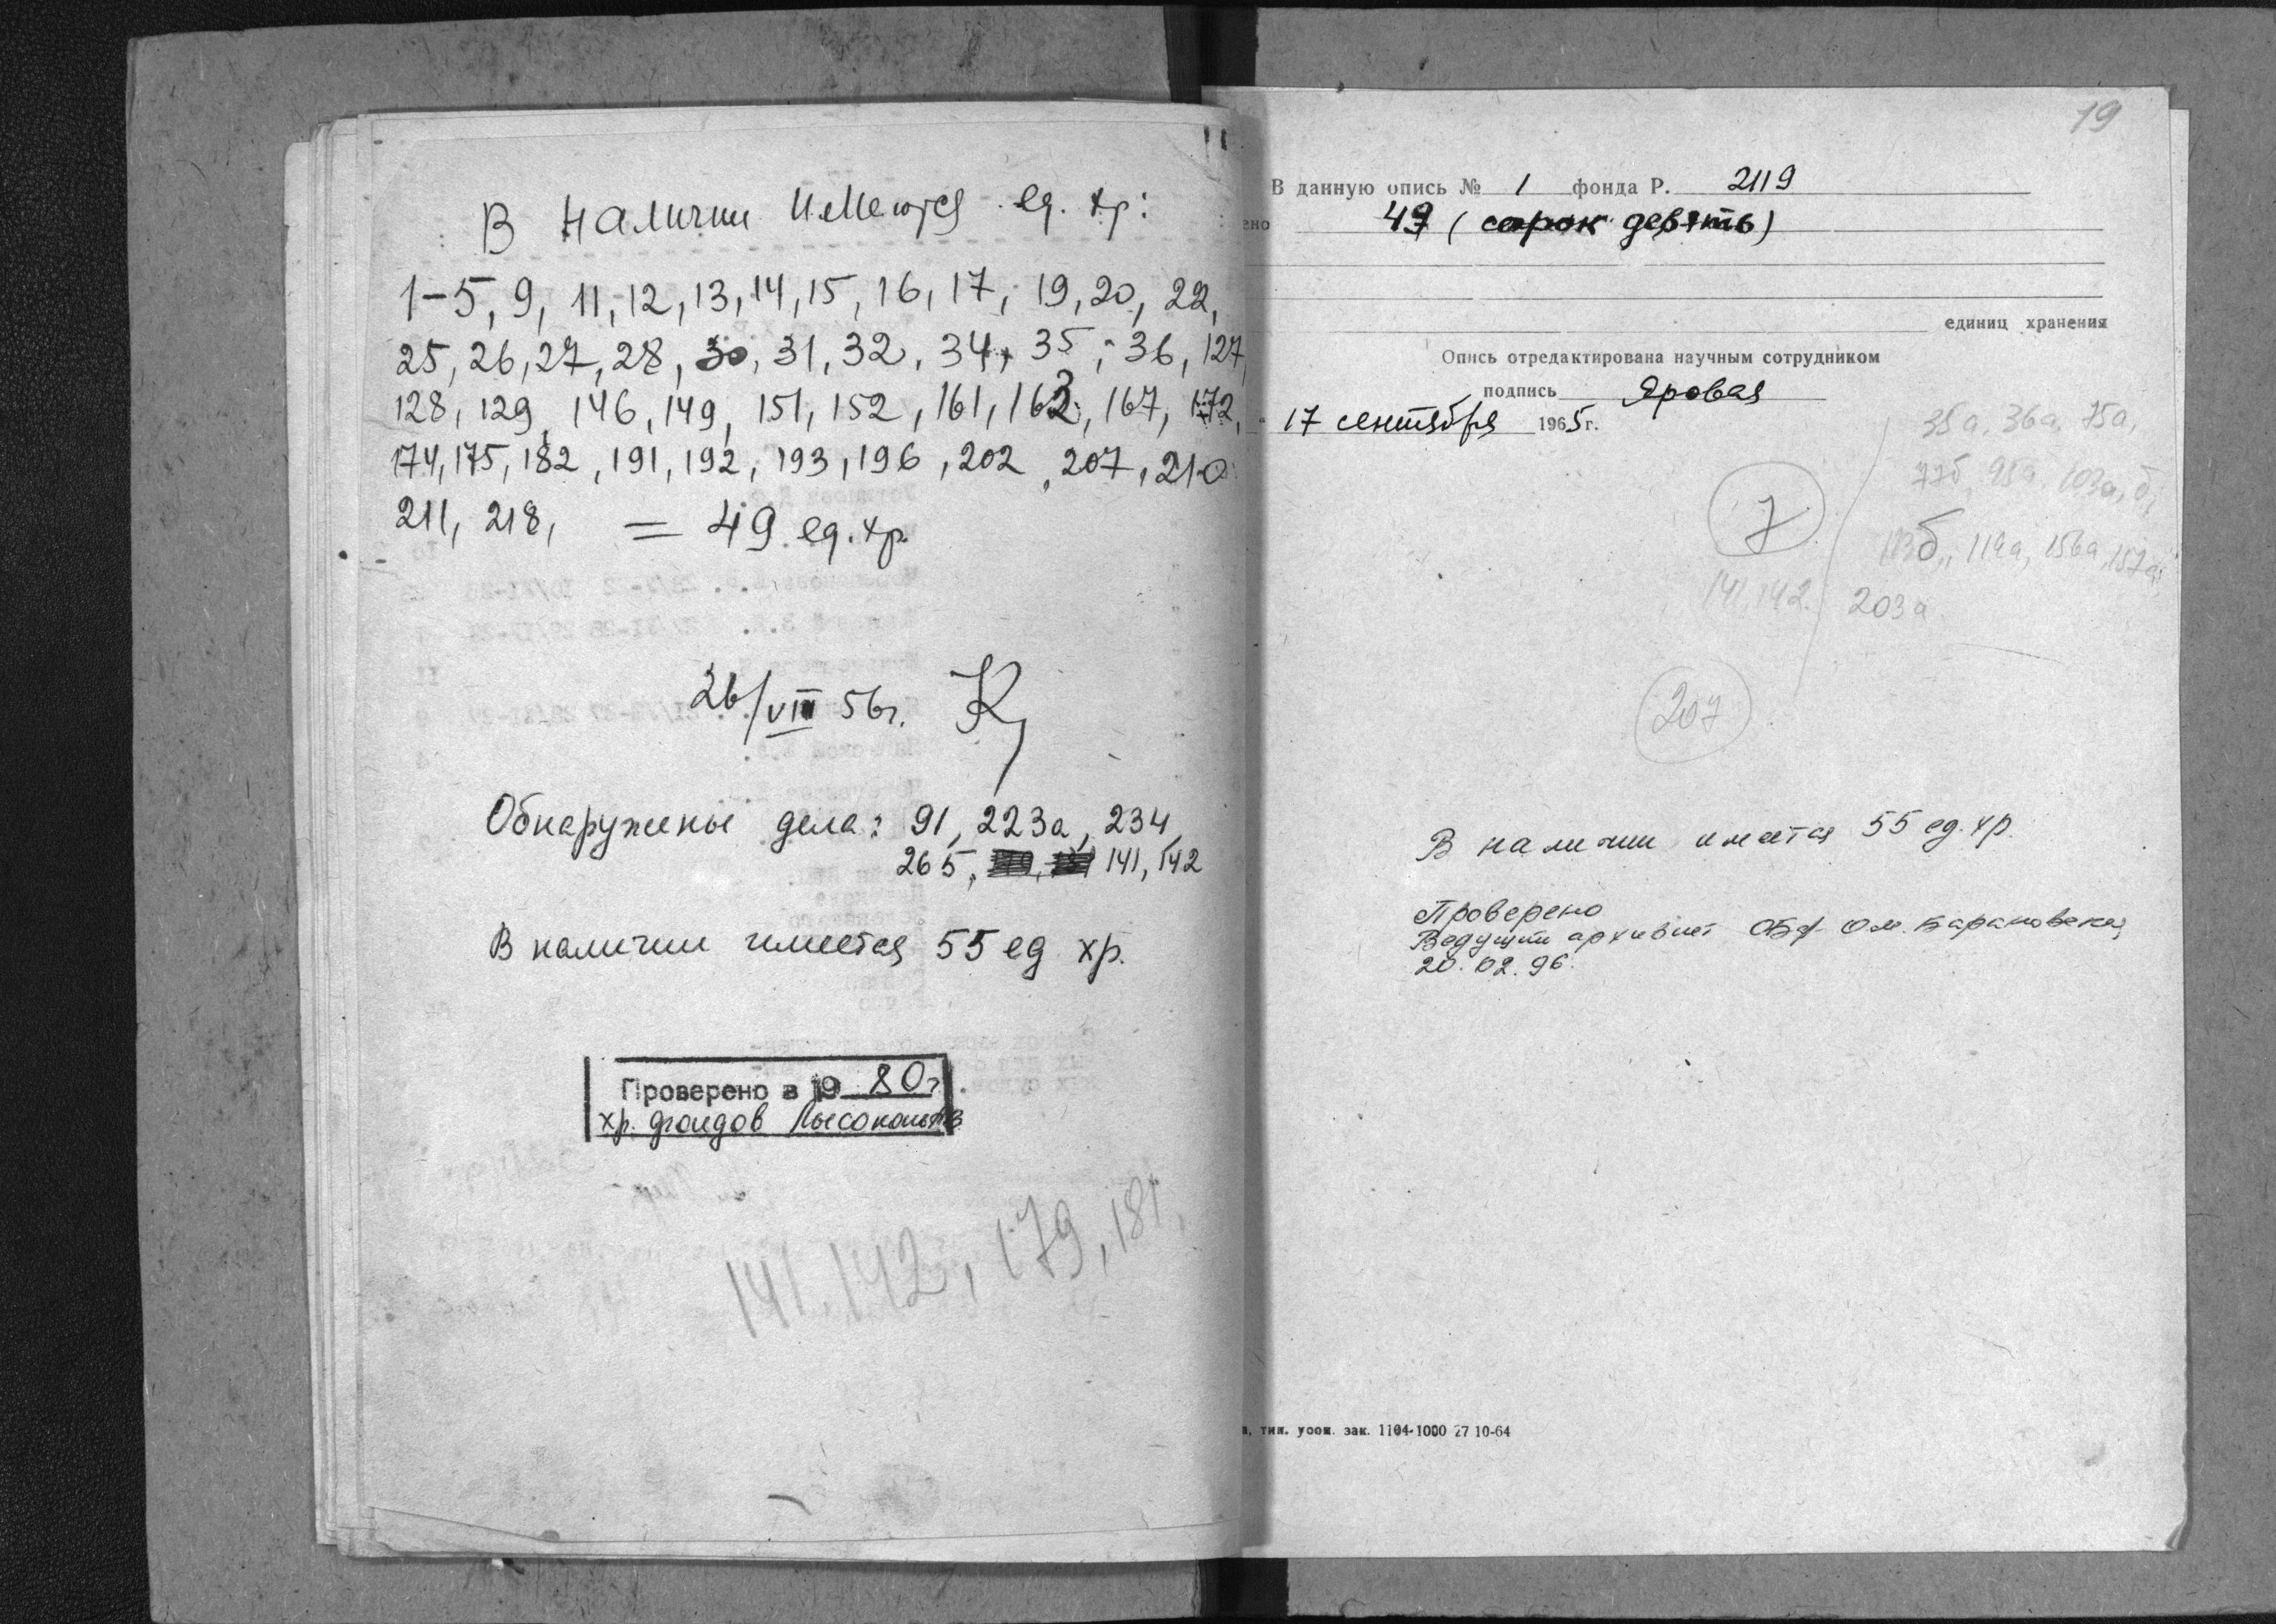 В наличии имеются ед. хр:
1-5, 9, 11, 12, 13, 14, 15, 16, 17, 19, 20, 22,
25, 26, 27, 28, 30, 31, 32, 34, 35, 36, 127,
128, 129, 146, 149, 151, 152, 161, 163, 167, 172,
174, 175, 182, 191, 192, 193, 196, 202, 207, 210
211, 218, = 49 ед. хр.
26/VIII 56г.
Обнаружены дела: 91, 223а, 234,
265, 141, 142
В наличии имеется 55 ед хр.
Проверено в 1980г.
хр. фондов
141, 142, 179, 181,
19
В данную опись № 1 фонда Р. 2119
ено 49 (сорок девять)
единиц хранения
Опись отредактирована научным сотрудником
подпись Яровая
17 сентября 1965 г.
35а, 36а, 75а,
77б, 95а, 103а, б,
7
113б, 119а, 156а, 157а,
141, 142. 203а
207
В наличии имеется 55 ед. хр.
Проверено
Ведущий архивист О.М. Барановская
20.02.96.
зак. 1104-1000 27 10-64